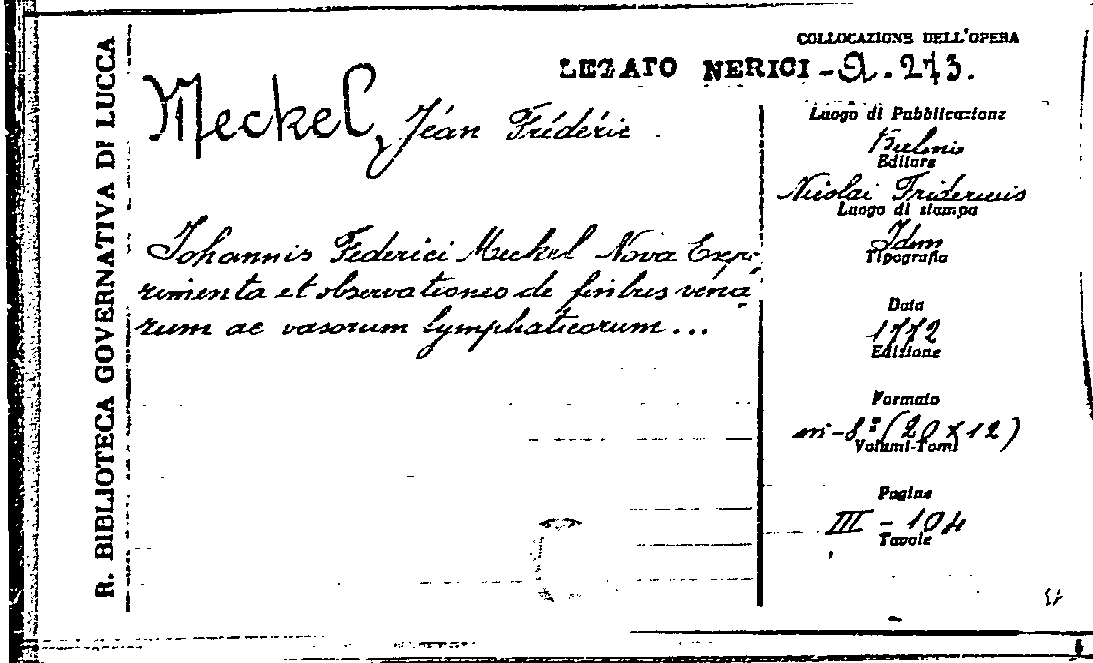 R. BIBLIOTECA GOVERNATIVA DI LUCCA
COLLOCAZIONE DELL'OPERA
LEZATO NERICI - A. 273.
Meckel, Jéan Frédéric.
Johannis Federici Meckel Nova Expe-
rimenta et observationes de finibus vena-
rum ac vasorum lymphaticorum...
Luogo di Pubblicazione
Editore
Nicolai
Luogo di stampa
Idem
Tipografia
Data
1772
Edizione
Formato
in-8° (20x12)
Volumi-Tomi
Pagine
III - 104
Tavole